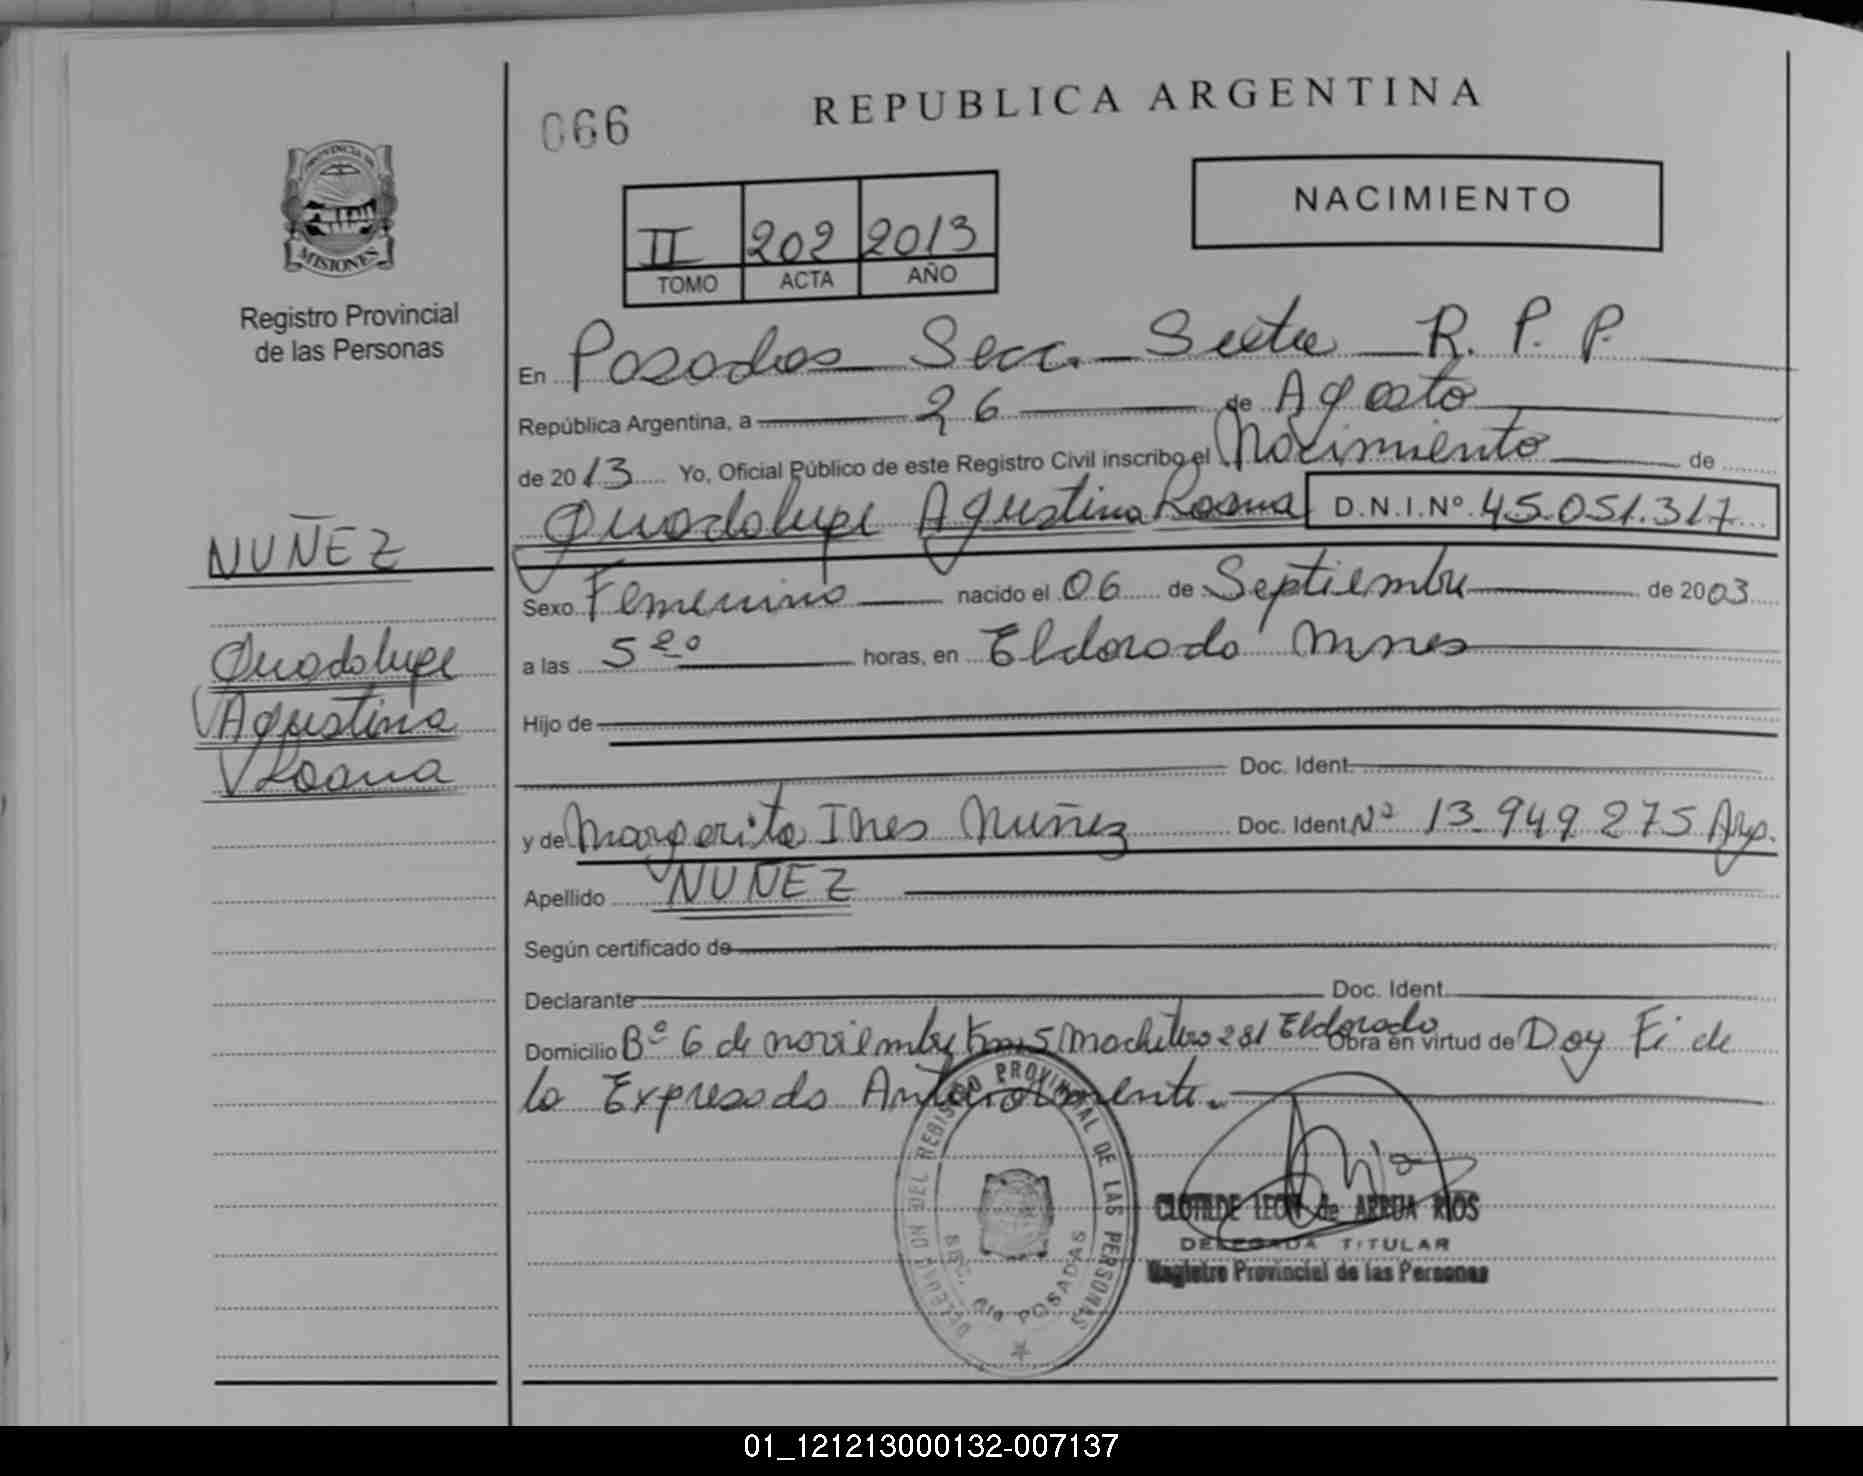 066
REPUBLICA ARGENTINA
NACIMIENTO
II 202 2013
TOMO ACTA AÑO
PROVINCIA DE
MISIONES
Registro Provincial
de las Personas
En Posadas Secc. Sexta R. P. P.
República Argentina, a 26 de Agosto
de 2013 Yo, Oficial Público de este Registro Civil inscribo el Nacimiento de
Guadalupe Agustina Roana D.N.I.Nº 45.051.317
NUÑEZ
Guadalupe
Agustina
Roana
Sexo Femenino nacido el 06 de Septiembre de 2003
a las 5 20 horas, en Eldorado Mnes
Hijo de
Doc. Ident.
y de Margarita Ines Nuñez Doc. Ident. Nº 13.949.275 Arg.
Apellido NUÑEZ
Según certificado de
Declarante Doc. Ident.
Domicilio Bº 6 de noviembre Km 5 281 Eldorado Obra en virtud de Doy Fé de
lo Expresado Anteriormente.
DELEGACION DEL REGISTRO PROVINCIAL DE LAS PERSONAS
SEC. 6ta POSADAS
CLOTILDE LEON de ARRUA RIOS
DELEGADA TITULAR
Registro Provincial de las Personas
01_121213000132-007137